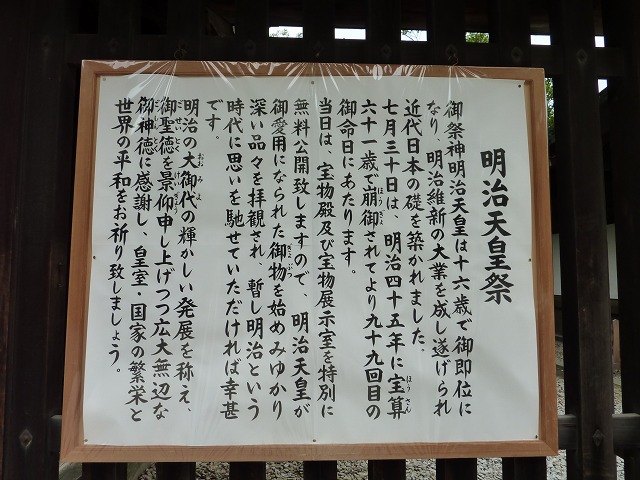 明治天皇祭
御祭神明治天皇は十六歳で御即位に
なり、明治維新の大業を成し遂げられ
近代日本の礎を築かれました。
七月三十日は、明治四十五年に宝算
六十一歳で崩御されてより九十九回目の
御命日にあたります。
当日は、宝物殿及び宝物展示室を特別に
無料公開致しますので、明治天皇が
御愛用になられた御物を始めみゆかり
深い品々を拝観され、暫し明治という
時代に思いを馳せていただければ幸甚
です。
明治の大御代の輝かしい発展を称え、
御聖徳を景仰申し上げつつ広大無辺な
御神徳に感謝し、皇室・国家の繁栄と
世界の平和をお祈り致しましょう。